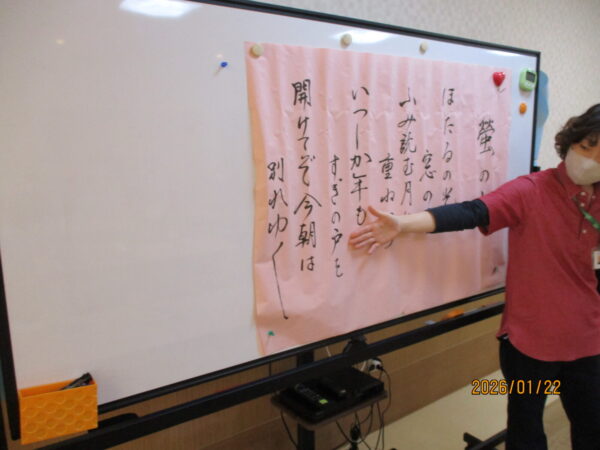 螢の
ほたるの光
窓の
ふみ読む月
重ね
いつしか年も
すぎの戸を
開けてぞ今朝は
別れゆく
2026/01/22